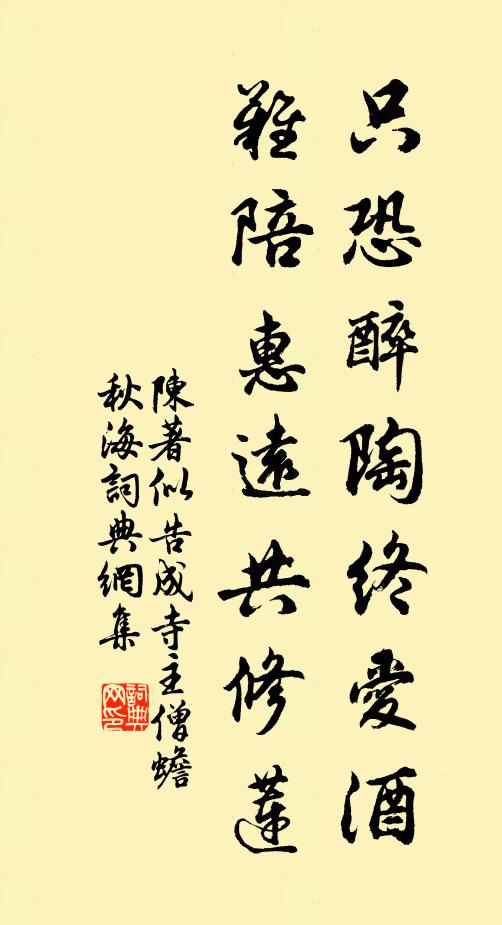 只恐醉陶終愛酒
難陪惠遠共修蓮
陳著似告成寺主僧蟾
秋海詞典網集
詞典网印